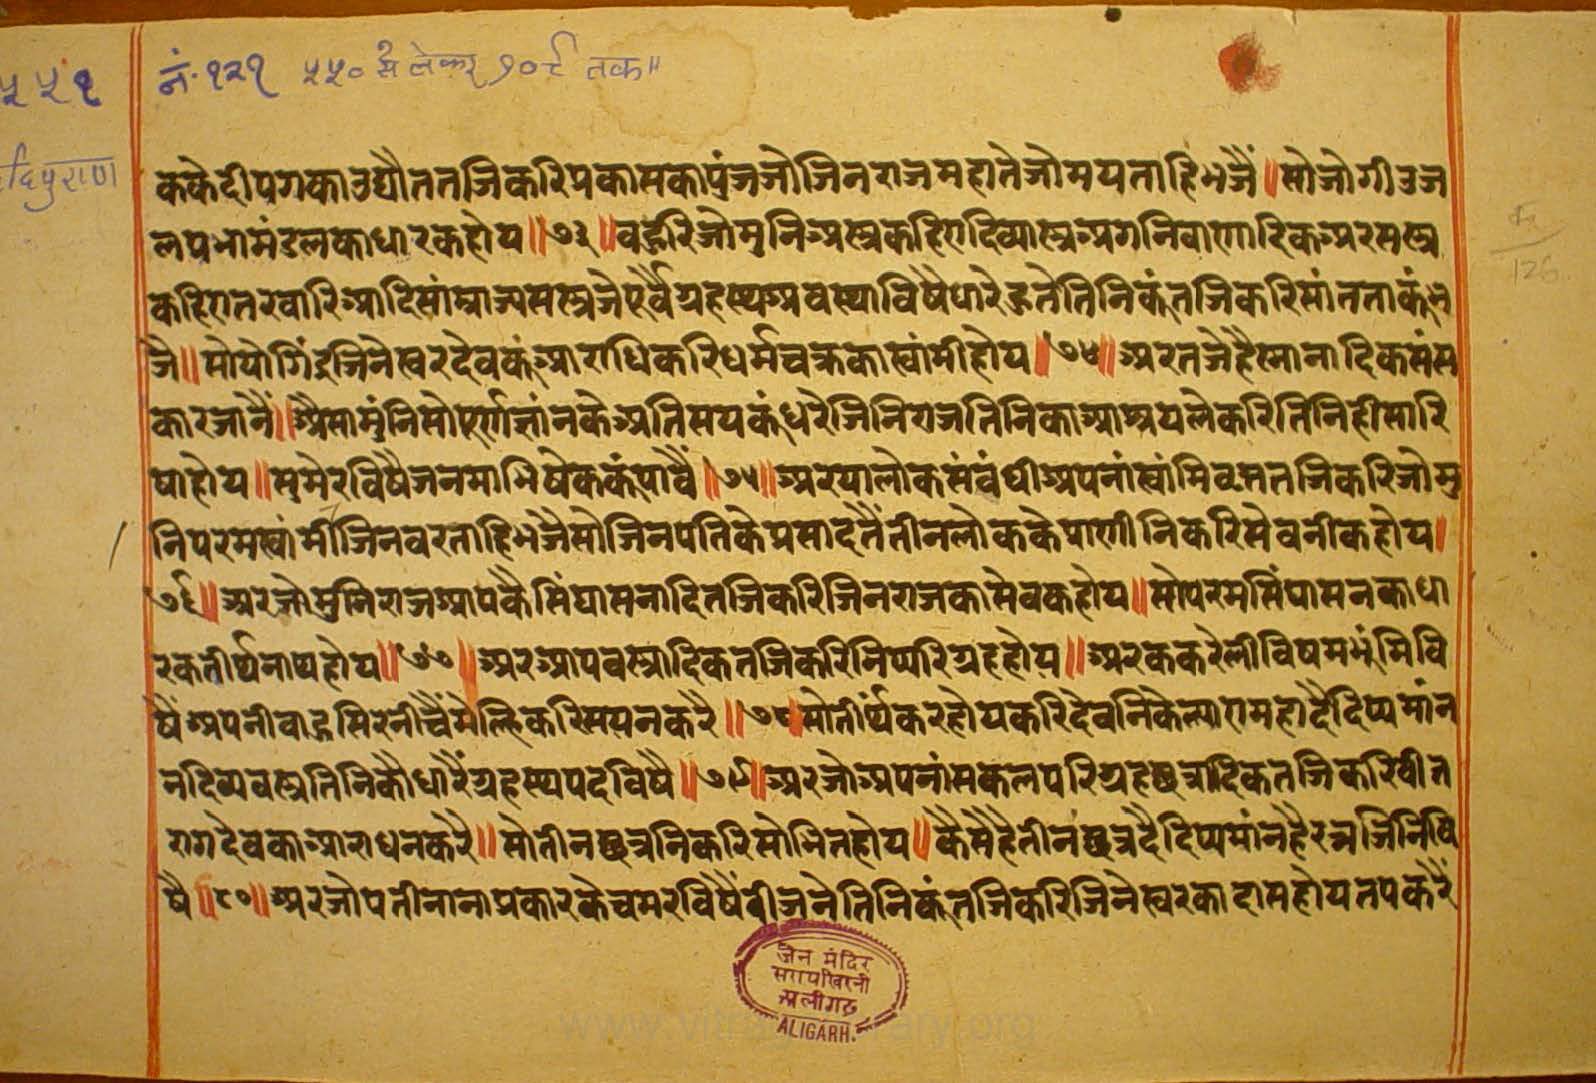 ५५१
नं. १२१ ५५० से लेकर ७०८ तक॥
दिपुराण
ककेदीपगकाउद्यौततजिकरिपकासकापुंजजोजिनराजमहातेजोमयताहिभजैं॥सोजोगीउज
लप्रभामंडलकाधारकहोय॥७३॥बहुरिजोमुनिअस्त्रकहिएदिव्यास्त्रअगनिवाणादिकअरसस्त्र
कहिएतरवारिआदिसांम्राज्यसस्त्रजेपूर्वैग्रहस्थअवस्थाविषैधारेहुतेतिनिकूंतजिकरिसांतताकूंभ
जै॥सोयोगिंद्रजिनेस्वरदेवकूंआराधिकरिधर्मचक्रकास्वांमीहोय॥७४॥अरतजेहैस्नानादिकसंस
कारजानैं॥अैसामुंनिसोपूर्णज्ञांनकेअतिसयकूंधरेजिनिराजतिनिकाआश्रयलेकरितिनिहीसारि
षाहोय॥सुमेरविषैजनमाभिषेककूंपावैं॥७५॥अरयालोकसंबंधीअपनांस्वांमिवसततजिकरिजोमु
निपरमस्वांमीजिनवरताहिभजैसोजिनपतिकेप्रसादतैंतीनलोककेप्राणीनिकरिसेवनीकहोय॥
७६॥अरजोमुनिराजआपकैसिंघासनादितजिकरिजिनराजकासेवकहोय॥सोपरमसिंघासनकाधा
रकतीर्थनाथहोय॥७७॥अरआपवस्त्रादिकतजिकरिनिप्परिग्रहहोय॥अरककरेलीविषमभूंमिवि
षैंअपनीबाहुसिरनीचैंमेल्हिकरिसयनकरै॥७८॥सोतीर्थंकरहोयकरिदेवनिकेल्याएमहादैदिप्यमांन
नदिव्यवस्त्रतिनिकौधारैंग्रहस्थपदविषै॥७९॥अरजोअपनांसकलपरिग्रहछत्रादिकतजिकरिवीत
रागदेवकाआराधनकरै॥सोतीनछत्रनिकरिसोभितहोय॥कैसेहैतीनछत्रदैदिप्यमांनहैरत्नजिनिवि
षै॥८०॥अरजोपतीनानाप्रकारकेचमरविषैंबीजनेतिनिकूंतजिकरिजिनेस्वरकादासहोयतपकरैं
जैन मंदिर
सरायखिरनी
अलीगढ़
ALIGARH.
क
126